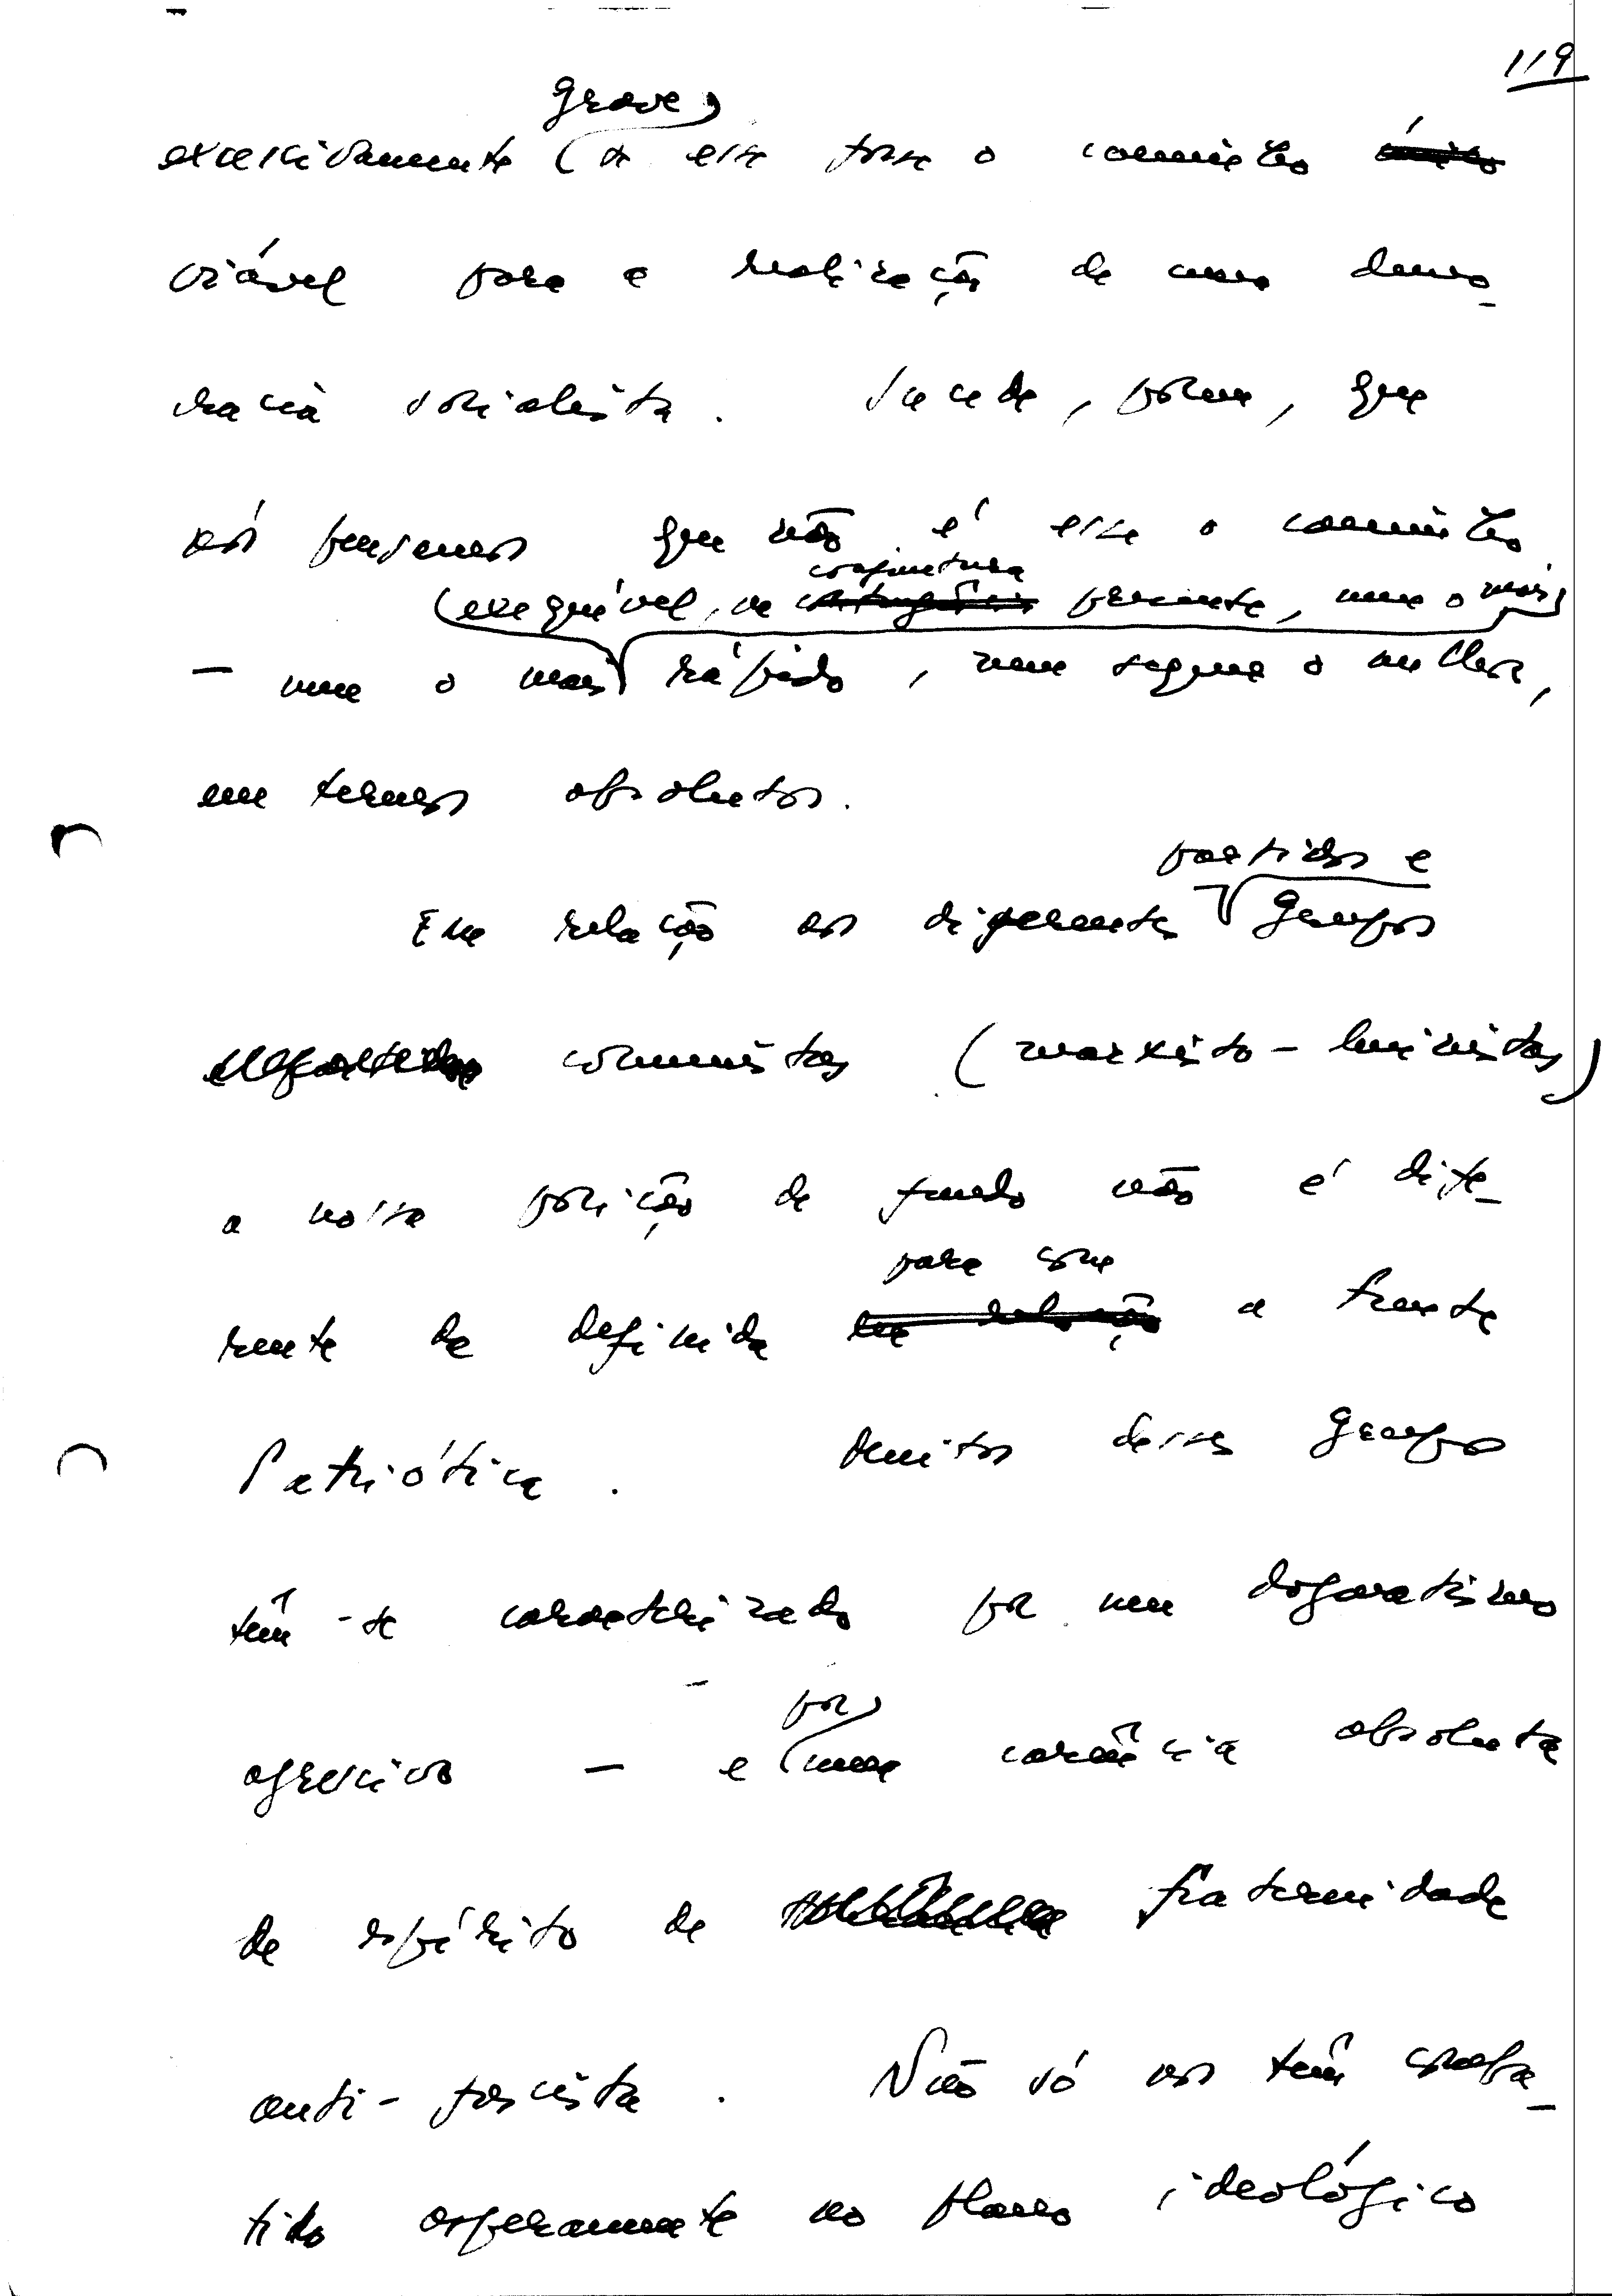 119
grave
excessivamente (se esse fosse o caminho único
viável para a realização de uma demo-
cracia socialista. Sucede, porém, que
nós pensamos que não é esse o caminho
conjuntura
exequível, na presente, nem o mais
- nem o mais rápido, nem sequer o melhor,
em termos absolutos.
partidos e
Em relação aos diferentes grupos
comunistas (marxisto-leninistas)
a nossa posição de fundo não é dife-
para com
rente da definida em relação a Frente
Patriótica. Muitos desses grupos
têm-se caracterizado por um dogmatismo
por
agressivo - e uma carência absoluta
de espírito de fraternidade
anti-fascista. Não só nos têm comba-
tido asperamente no plano ideológico